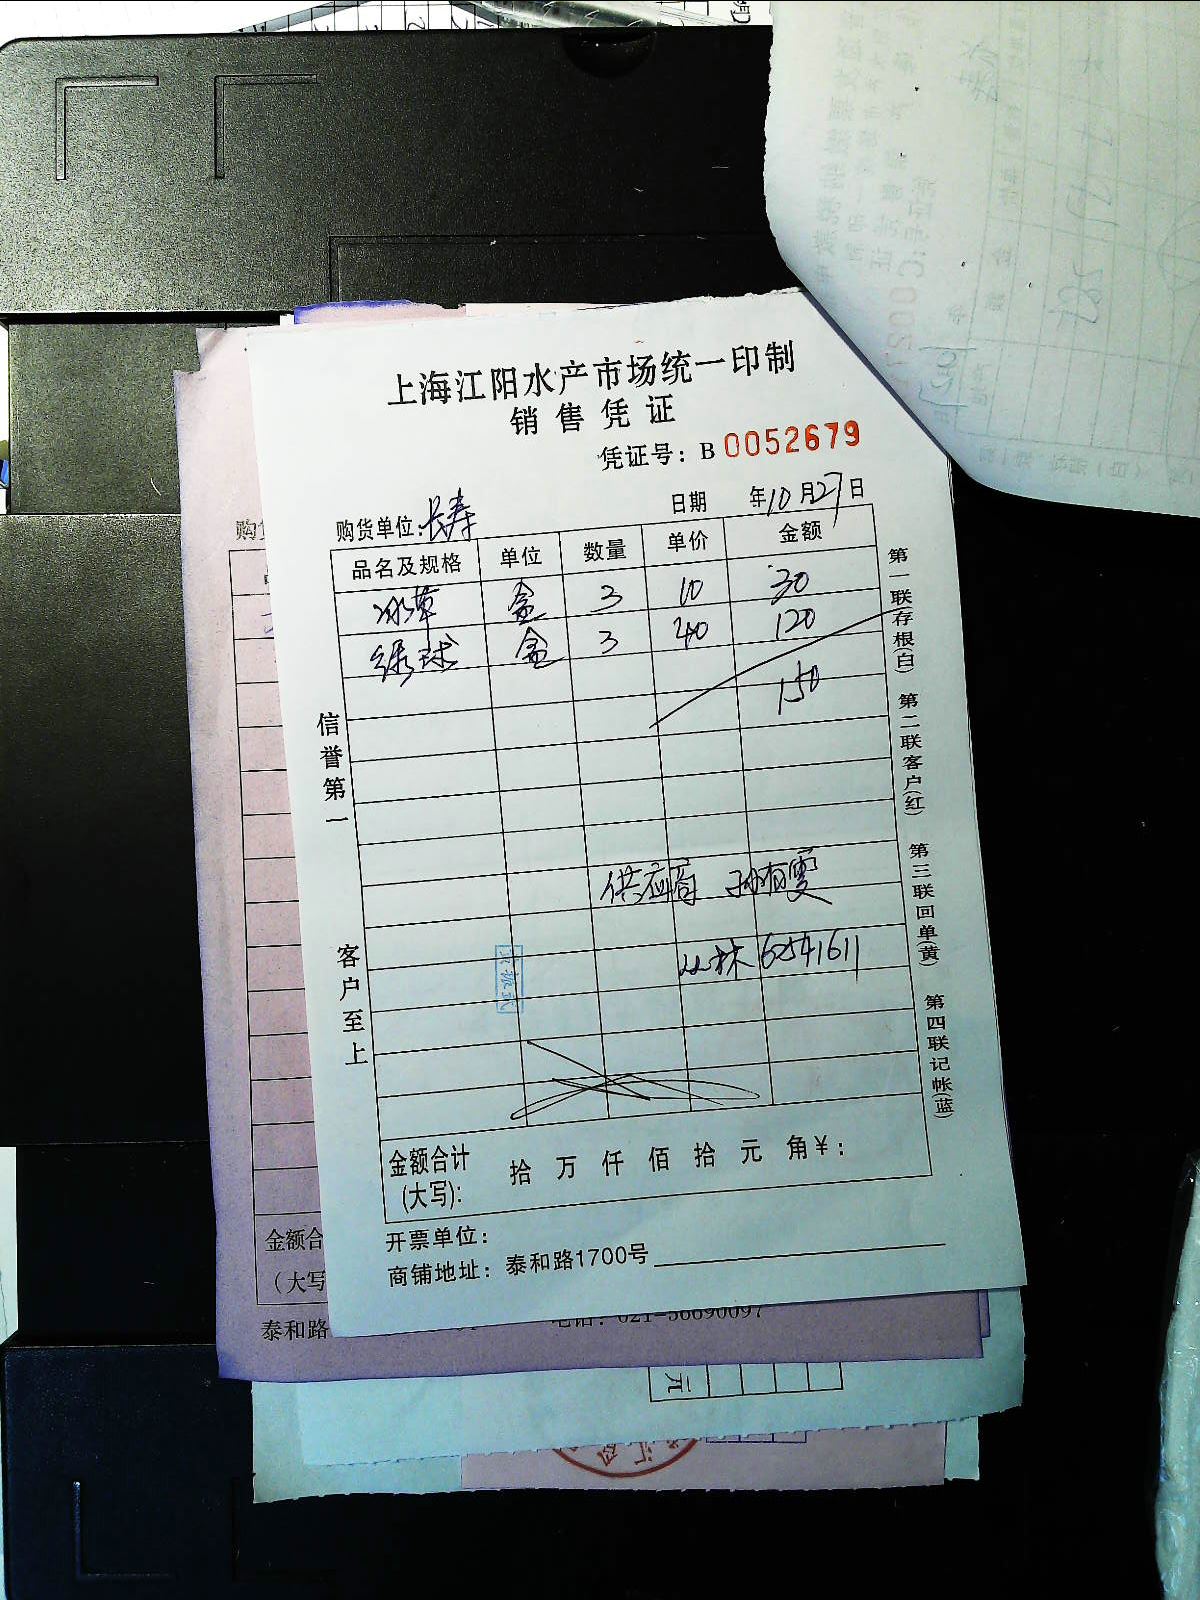 上海江阳水产市场统一印制
销售凭证
凭证号：B 0052679
购货单位：长寿 日期 年10月27日
品名及规格 单位 数量 单价 金额
冰草 盒 3 10 30
绿球 盒 3 40 120
150
供应商 孙有雯
丛林 62541611
金额合计(大写)： 拾 万 仟 佰 拾 元 角￥：
开票单位：
商铺地址：泰和路1700号
信誉第一
客户至上
第一联存根(白) 第二联客户(红) 第三联回单(黄) 第四联记帐(蓝)
购货
金额合
（大写
泰和路
电话：021-56690097
元